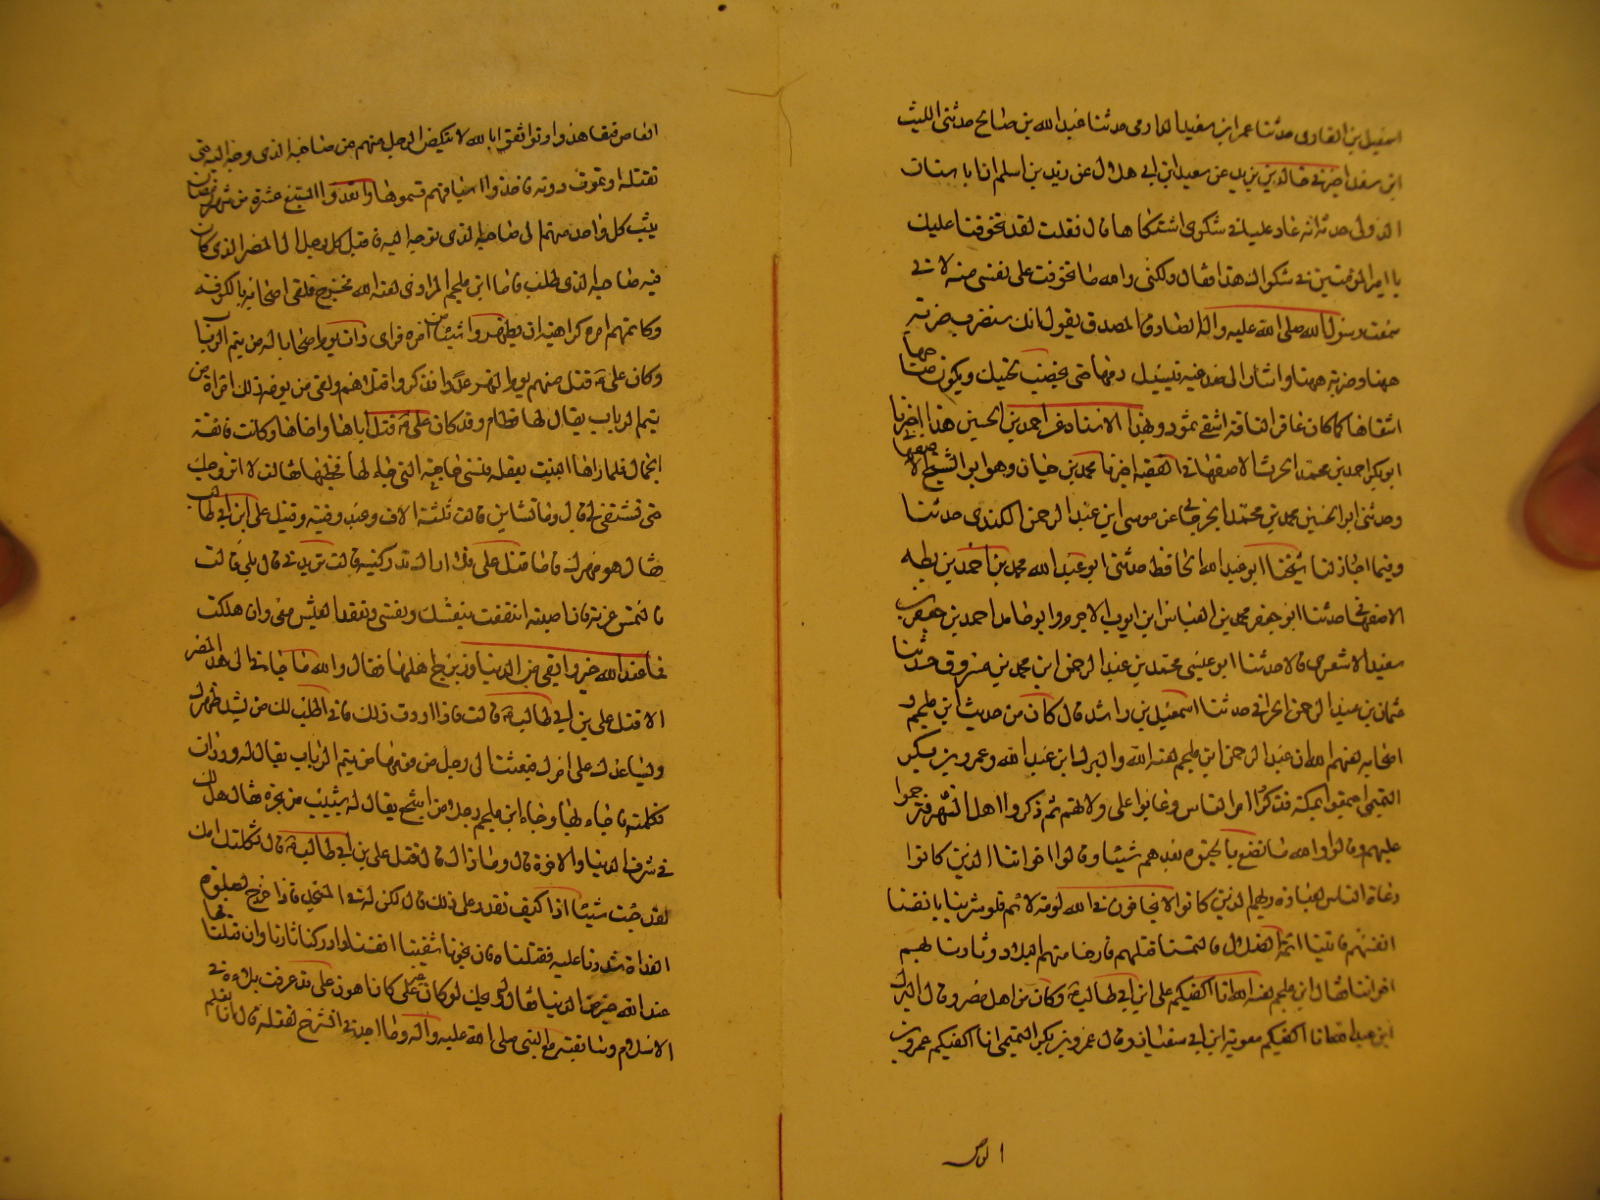 اسمعيل بن القاري حدثنا عمر ابن سعيد الدارمي حدثنا عبد الله بن صالح حدثني الليث
ابن سعد اخبرني خالد بن يزيد عن سعيد ابن ابي هلال عن زيد بن اسلم ان ابا سنان
الدولي حدثه انه عاد عليا في شكوى اشتكاها قال فقلت لقد تخوفنا عليك
يا امير المؤمنين في شكواك هذا فقال ولكني والله ما تخوفت على نفسي منه لاني
سمعت رسول الله صلى الله عليه واله الصادق المصدق يقول انك ستضرب ضربة
ههنا وضربة ههنا واشار الى صدغيه فيسيل دمها حتى يخضب لحيتك ويكون صاحبها
اشقاها كما كان عاقر الناقة اشقى ثمود وبهذا الاسناد عن احمد بن الحسين هذا اخبرنا
ابو بكر احمد بن محمد الحرث الاصفهاني الفقيه اخبرنا محمد بن حيان وهو ابو الشيخ الاصفهاني
وحدثني ابو الحسين محمد بن محمد الجرجاني عن موسى ابن عبد الرحمن الكندي حدثنا
وفيما اجاز لنا شيخنا ابو عبد الله الحافظ حدثني ابو عبد الله محمد بن احمد بن بطه
الاصفهاني حدثنا ابو جعفر محمد بن العباس ابن ايوب الاخرم وابو حامد احمد بن جعفر بن
سعيد الاشعري قالا حدثنا ابو عيسى محمد بن عبد الرحمن ابن محمد بن مسروق حدثنا
عثمان بن عبد الرحمن الحراني حدثنا اسمعيل بن راشد قال كان من حديث ابن ملجم و
اصحابه لعنهم الله ان عبد الرحمن ابن ملجم لعنه الله والبرك ابن عبد الله وعمرو بن بكر
التميمي اجتمعوا بمكة فتذكروا امر الناس وعابوا على ولاتهم ثم ذكروا اهل النهر فترحموا
عليهم وقالوا والله ما نصنع بالحيوة بعدهم شيئا وقالوا اخواننا الذين كانوا
دعاة الناس لعبادة ربهم الذين كانوا لا يخافون في الله لومة لائم فلو شرينا بانفسنا
انفسهم فاتينا ائمة الضلال فالتمسنا قتلهم فارحنا منهم البلاد وثارنا بهم
اخواننا فقال ابن ملجم لعنه الله انا اكفيكم علي ابن ابي طالب وكان من اهل مصر وقال البرك
ابن عبد الله انا اكفيكم معوية ابن ابي سفيان وقال عمرو بن بكر التميمي انا اكفيكم عمرو بن
العاص فتعاهدوا وتواثقوا بالله لا ينكص الرجل منهم من صاحبه الذي وجه اليه حتى
نقتله او يموت دونه فاخذوا اسيافهم فسموها واتعدوا السبع عشرة من شهر رمضان
يثب كل واحد منهم الى صاحبه الذي توجه اليه فاقبل كل رجل الى المصر الذي كان
فيه صاحبه الذي طلب فاما ابن ملجم المرادي لعنه الله فخرج فلقي اصحابه بالكوفة
وكاتمهم امره كراهية ان يظهروا شيئا من امره فراى ذات يوم اصحابا له من تيم الرباب
وكان علي قتل منهم يوم النهر عددا فذكروا قتلاهم ولقي من يومه ذلك امراة من
تيم الرباب يقال لها قطام وقد كان علي قتل اباها واخاها وكانت فائقة
الجمال فلما راها التبست بعقله ونسي حاجته التي جاء لها فخطبها قالت لا اتزوجك
حتى تشتفي لي قال وما تشائين قالت ثلثة الاف وعبد وقينة وقتل علي ابن ابي طالب
فقال هو مهرك فاما قتل علي فلا اراك تدركينه قالت تريدني قال بلى قالت
فالتمس غرته فان اصبته انتفعت بنفسك ونفسي ونفعك العيش معي وان هلكت
فما عند الله خير وابقى من الدنيا وزبرج اهلها فقال والله ما جاءني الى هذا المصر
الا قتل علي بن ابي طالب قالت فاذا اردت ذلك فاني اطلب لك من يشد ظهرك
ويساعدك على امرك فبعثت الى رجل من قومها من تيم الرباب يقال له وردان
فكلمته فاجاء لها وجاء ابن ملجم رجل من اشجع يقال له شبيب من بجره فقال هل لك
في شرف الدنيا والاخرة قال وما ذاك قال قتل علي بن ابي طالب قال ثكلتك امك
لقد جئت شيئا اذا كيف تقدر على ذلك قال اكمن له في المسجد فاذا خرج لصلوة
الغداة شددنا عليه فقتلناه فان نجونا شفينا انفسنا وادركنا ثارنا وان قتلنا فما
عند الله خير من الدنيا قال ويحك لو كان غير علي كان اهون علي قد عرفت بلاءه في
الاسلام وسابقته مع النبي صلى الله عليه واله وما اجدني انشرح لقتله قال اما تعلم